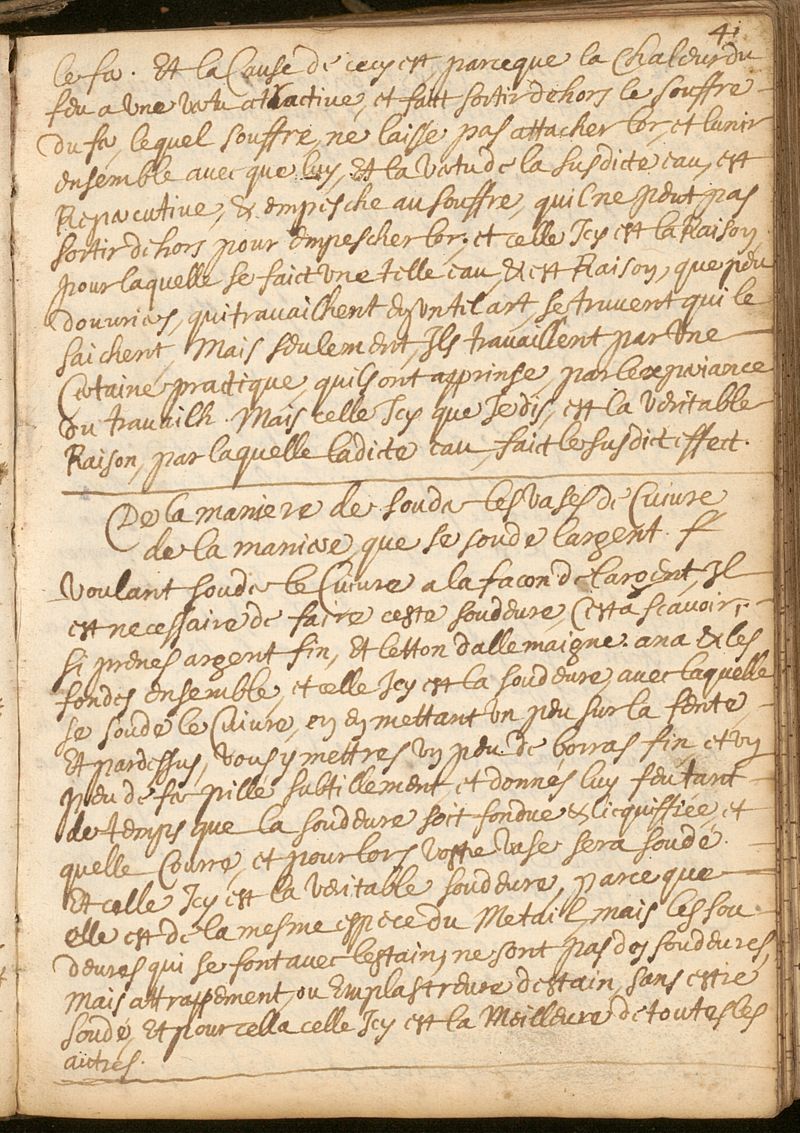 41
le fa. Et la Cause de cecy est, parceque la Chaleur du
feu a une vertu attractive, et faict sortir dehors le souffre
du fa, lequel souffre, ne laisse pas attacher lor, et lunir
ensemble avec que luy, Et la vertu de la susdicte eau, est
Repercutive, & empesche au souffre, quil ne peut pas
sortir dehors pour empescher lor, et celle Icy est la Raison
pour laquelle se faict Une telle eau, & est Raison, que peu
douvriers, qui travailhent en un tel art, se truvent qui le
saichent, Mais seulement, Ils travaillent par Une
Certaine practique, quils ont apprinse, par lexperiance
du travailh. Mais celle Icy que Je dis, est la veritable
Raison, par laquelle ladicte eau, faict le susdict effect.
De la maniere de souder les vases de Cuivre
de la maniere, que se soude largent.
Voulant souder le Cuivre a la facon de largent, Il
est necessaire de faire ceste soudeure, Cest a scavoir,
si prenes argent fin, et letton dallemaigne. ana & les
fondes ensemble, et celle Icy est la soudeure, avec laquelle
se soude le Cuivre, en en mettant un peu sur la fente,
Et pardessus, vous y mettres un peu de borras fin et un
peu de fa pille subtillement, et donnes luy feu tant
de temps que la soudeure soit fondue & licquiffiée, et
quelle Courre, et pour lors vostre vase sera soudé.
Et celle Icy est la veritable soudeure, parce que
elle est de la mesme espece du Metail, mais les sou
deures qui se font avec lestain, ne sont pas des soudeures,
Mais attrappement, ou Emplastreure destain, sans estre
soudé, Et pour cella celle Icy est la Meilleure de toutes les
autres.